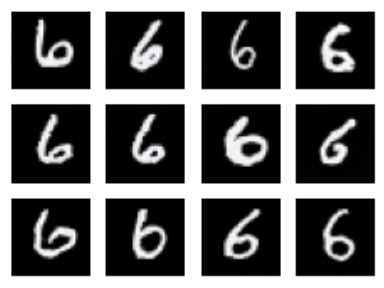 6 6 6 6
6 6 6 6
6 6 6 6